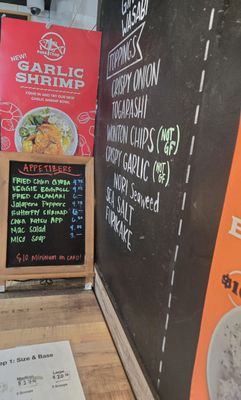 NEW!
GARLIC
SHRIMP
COME IN AND TRY OUR NEW
GARLIC SHRIMP BOWL
APPETIZERS
FRIED Chkn Gyoza
VEGGIE EGGROLL
FRIED CALAMARI
Jalapeno Poppers
Butterfly SHRIMP
Chkn Katsu APP
Mac Salad
Miso Soup
$10 MINIMUM on CARD!
WASABI
TOPPINGS
CRISPY ONION
TOGARASHI
WONTON CHIPS (NOT GF)
CRISPY GARLIC (NOT GF)
NORI Seaweed
SEA SALT
FURIKAKE
ep 1: Size & Base
Medium
Large
2 Scoops
3 Scoops